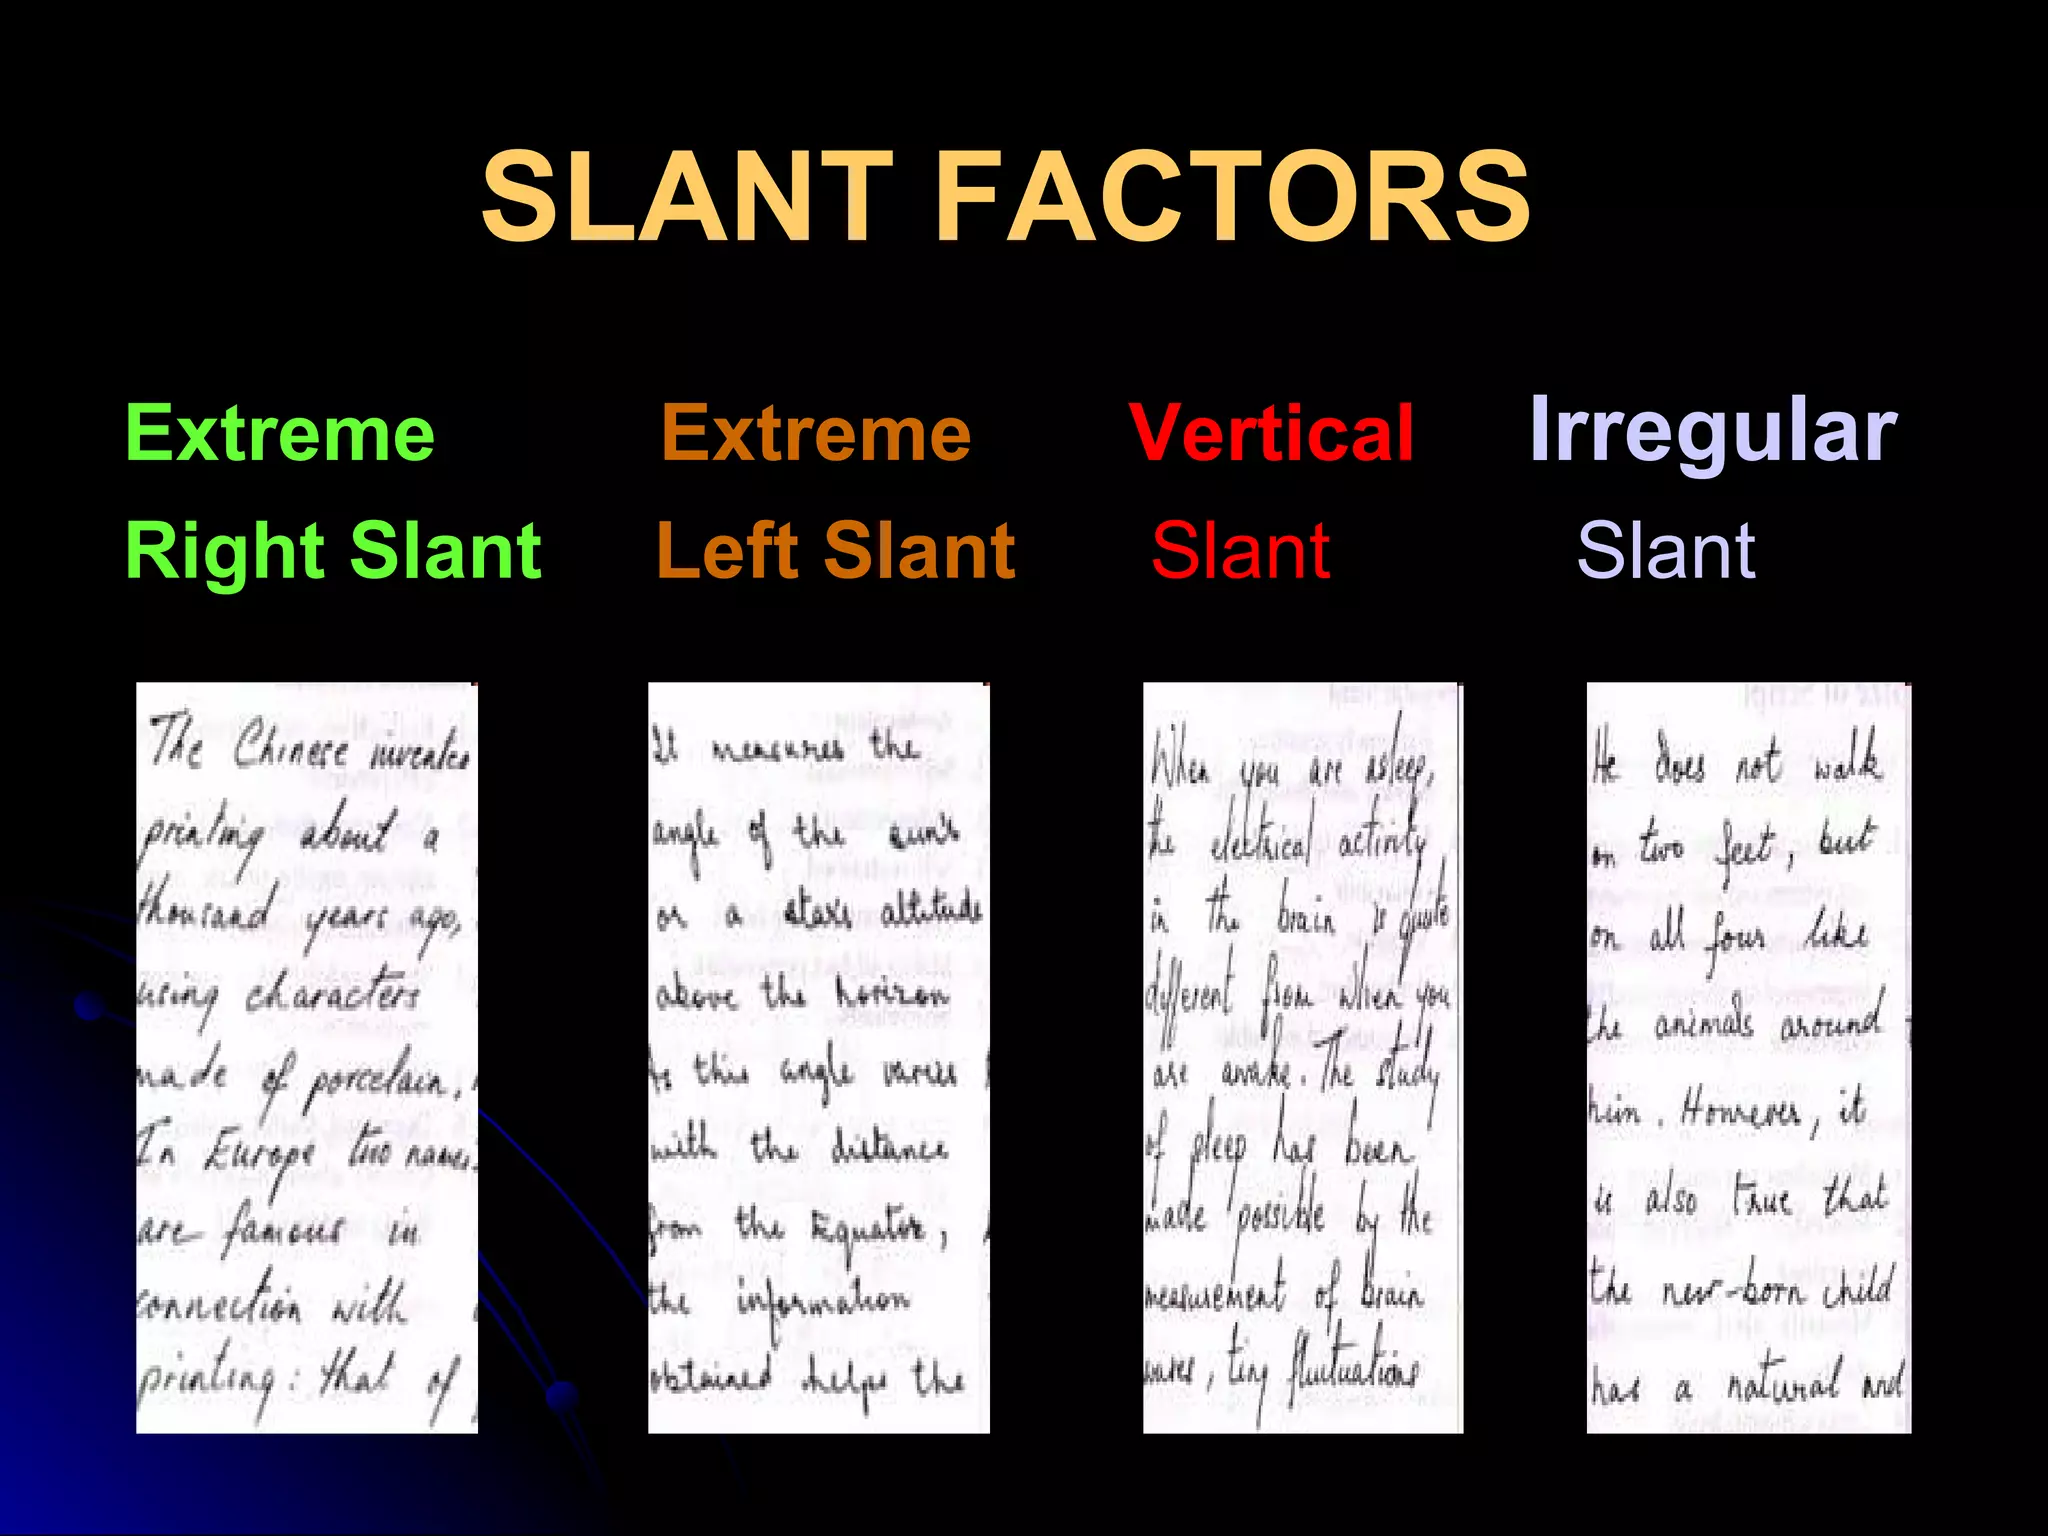 SLANT FACTORS
Extreme Extreme Vertical Irregular
Right Slant Left Slant Slant Slant
The Chinese invented
printing about a
thousand years ago,
using characters
made of porcelain,
In Europe two names
are famous in
connection with
printing: that of
It measures the
angle of the sun's
or a stars altitude
above the horizon
As this angle varies
with the distance
from the Equator,
the information
obtained helps the
When you are asleep,
the electrical activity,
in the brain is quite
different from when you
are awake. The study
of sleep has been
made possible by the
measurement of brain
waves, tiny fluctuations
He does not walk
on two feet, but
on all four like
the animals around
him. However, it
is also true that
the new-born child
has a natural and